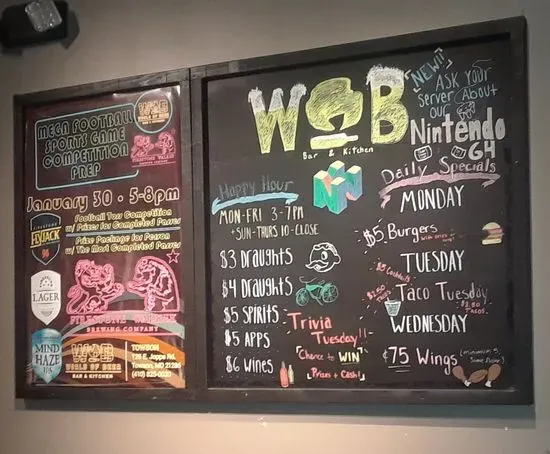 WORLD OF BEER
BAR & KITCHEN
MEGA FOOTBALL
SPORTS GAME
COMPETITION
PREP
FIRESTONE WALKER
BREWING COMPANY
January 30 • 5-8pm
Football Toss Competition
w/ Prizes for Completed Passes
Prize Package for Person
w/ The Most Completed Passes
FIRESTONE
FLYJACK
96
LAGER
FIRESTONE WALKER
BREWING COMPANY
MIND
HAZE
IPA
WOB
WORLD OF BEER
BAR & KITCHEN
TOWSON
Towson, MD 21286
WOB
Bar & Kitchen
NEW!!
ASK YOUR
Server About
our
Nintendo
64
Happy Hour
MON-FRI 3-7PM
+SUN-THURS 10-CLOSE
$3 Draughts
$4 Draughts
$5 Spirits
$5 Apps
$6 Wines
Trivia
Tuesday!!
Chance to WIN
Prizes + Cash!
Daily Specials
MONDAY
$5 Burgers
TUESDAY
$3 Cocktails
Taco Tuesday
$2.50
$2.50
Tacos
WEDNESDAY
¢75 Wings
(minimum 5,
Same flavor)